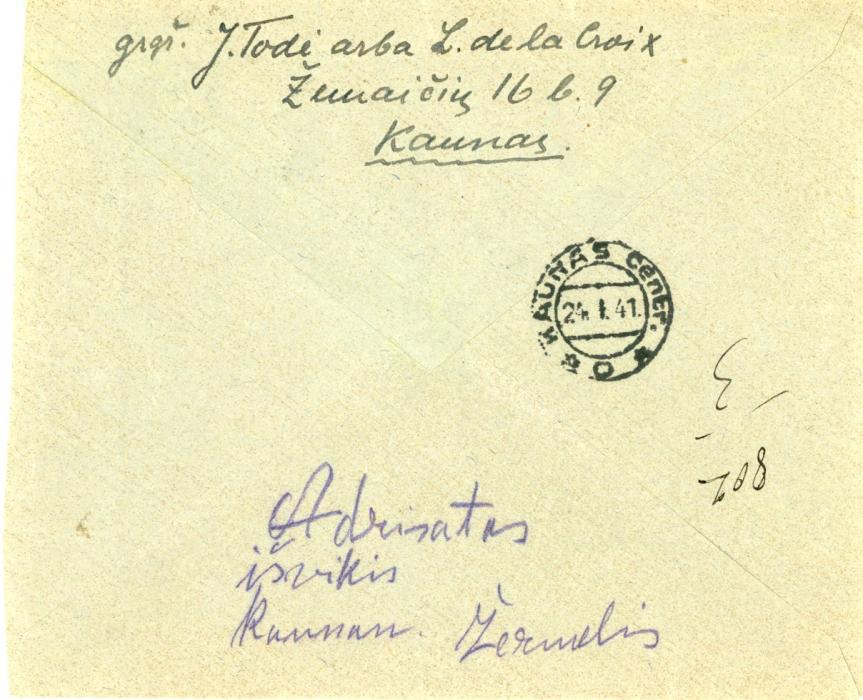 grąž. J. Todė arba L. de la Croix
Žemaičių 16 b. 9
Kaunas.
KAUNAS Centr. * O *
24. I. 41.
708
Adrisatas
išvikis
kaunan. Žermelis